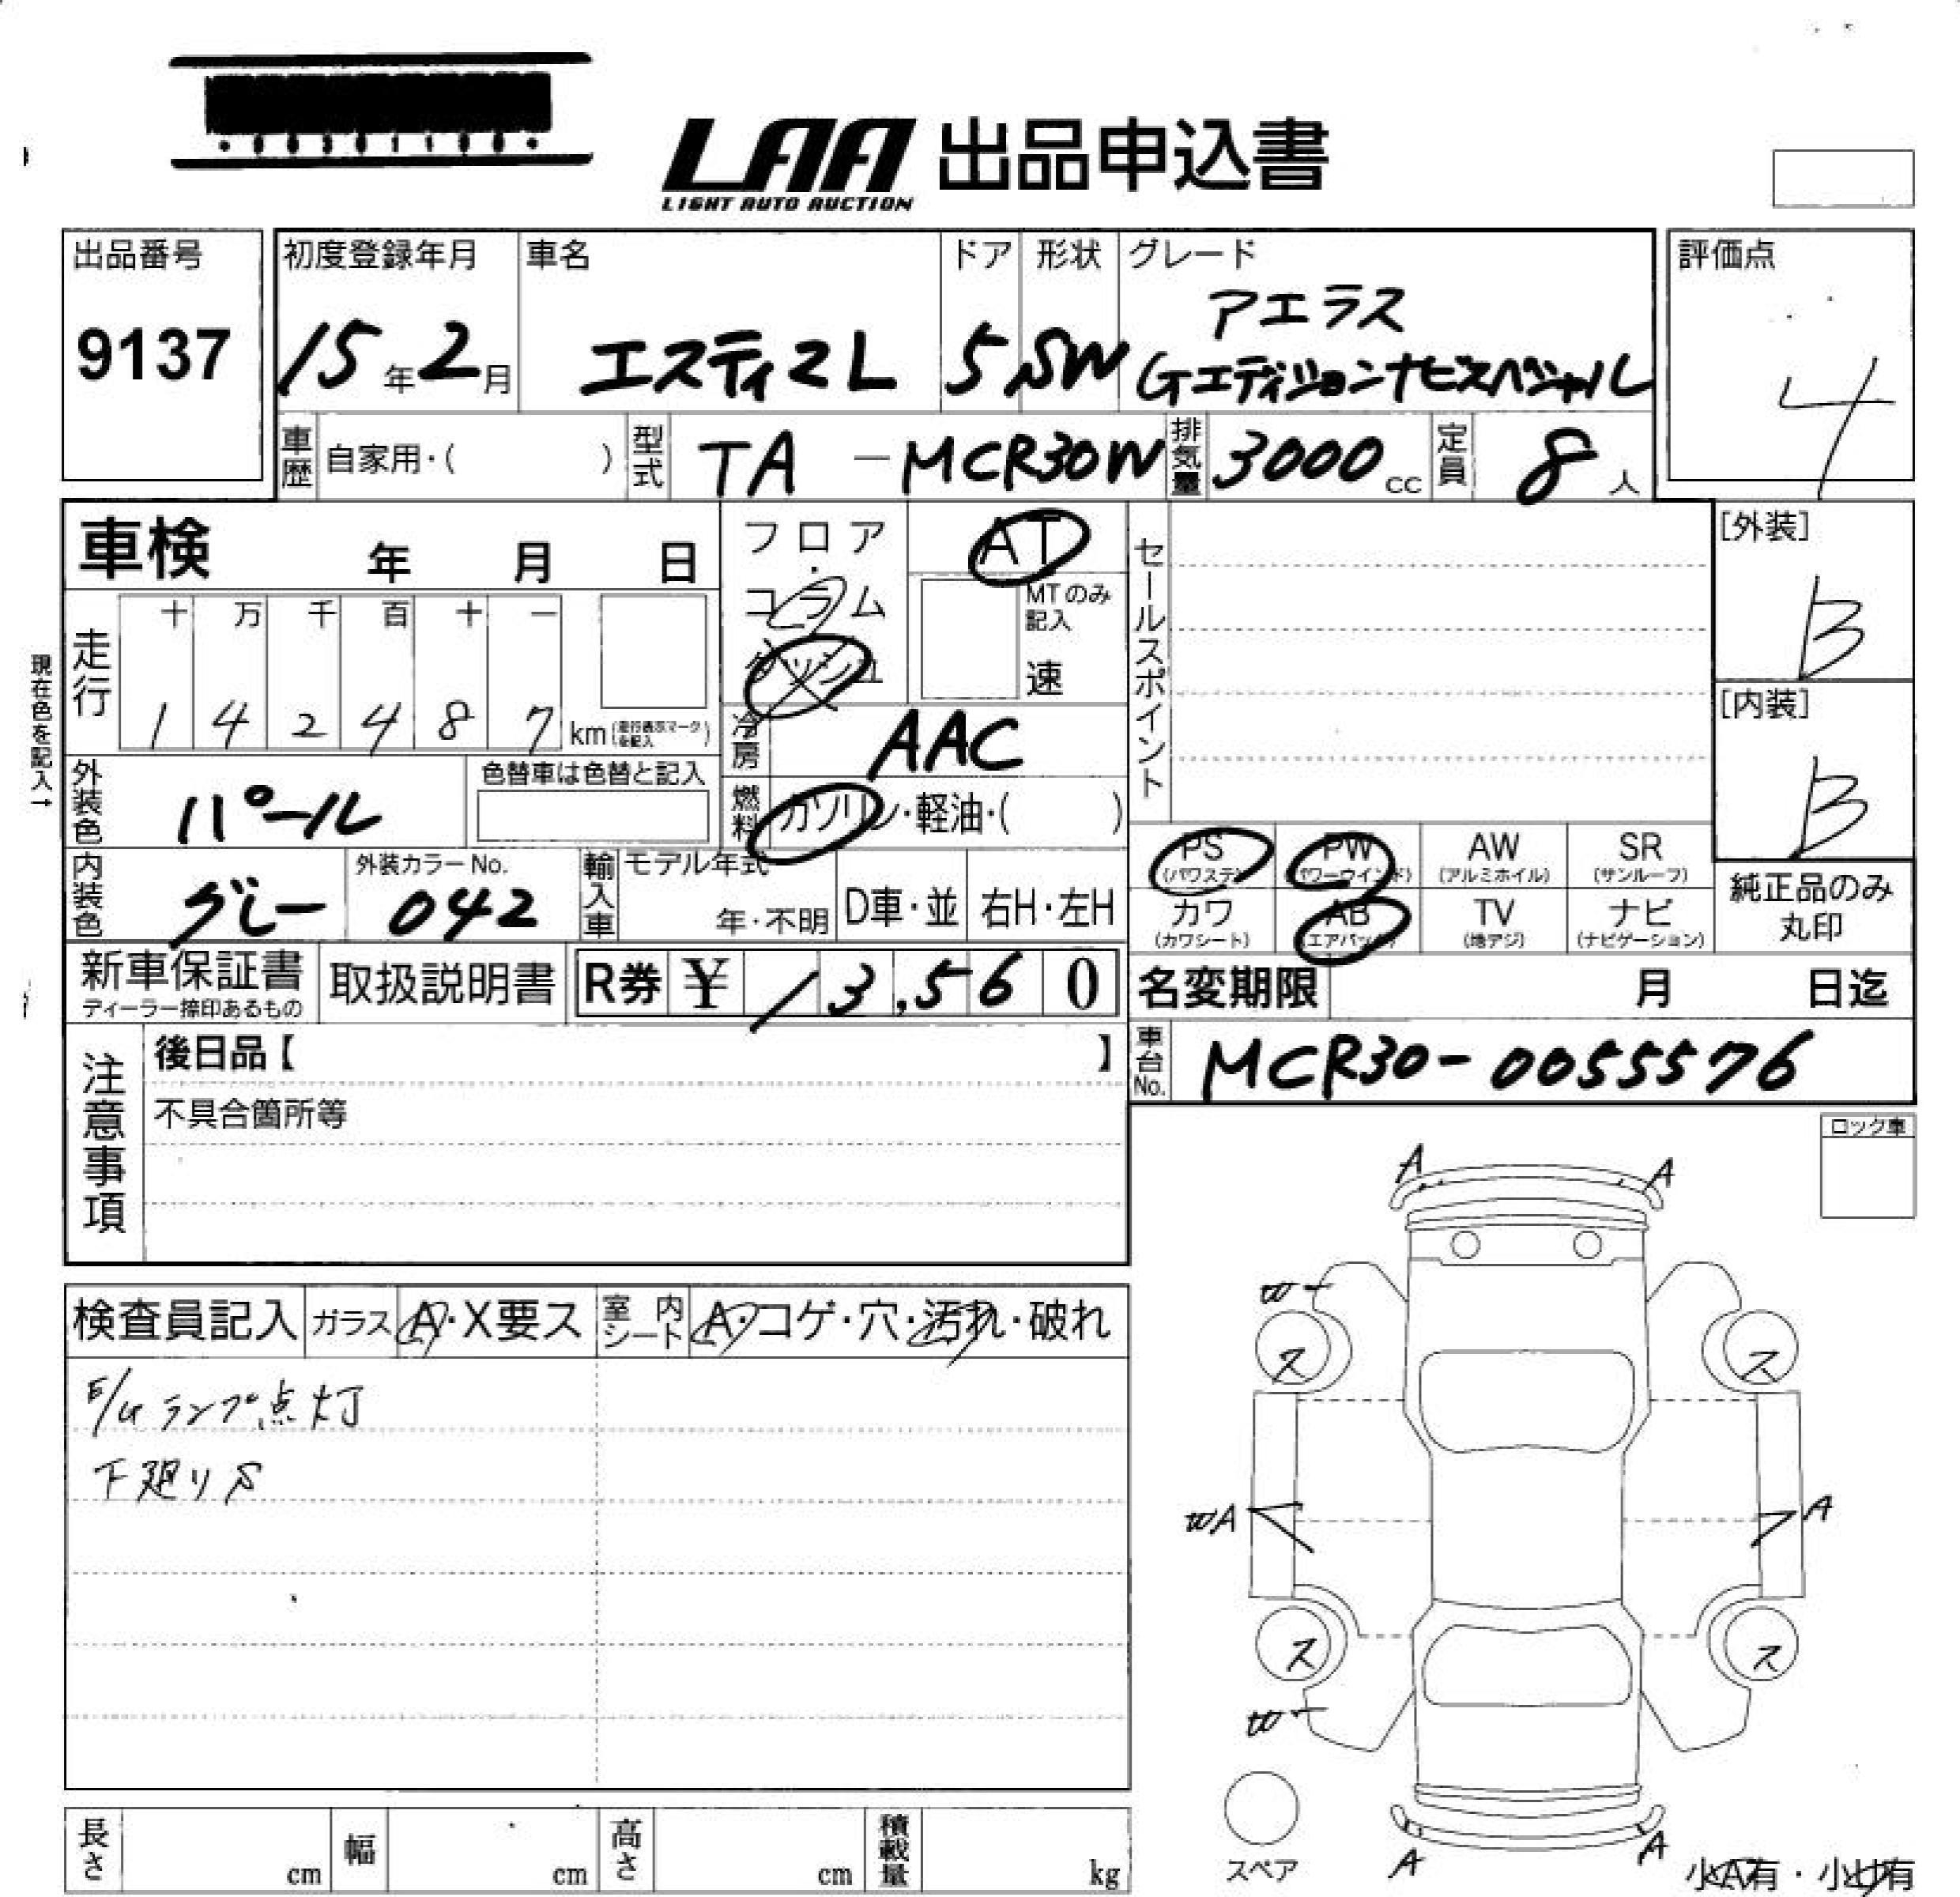 LAA 出品申込書
LIGHT AUTO AUCTION
出品番号
9137
初度登録年月
15年2月
車名
エスティマL
ドア
5
形状
SW
グレード
アエラス
Gエディションナビスペシャル
評価点
4
車歴
自家用・( )
型式
TA - MCR30W
排気量
3000cc
定員
8人
車検 年 月 日
フロア
コラム
AT
MTのみ
記入
速
セールスポイント
[外装]
B
[内装]
B
現在色を記入→
走行
十 万 千 百 十 一
1 4 2 4 8 7 km (走行表示マークを記入)
冷房
AAC
外装色
パール
色替車は色替と記入
燃料
ガソリン・軽油・( )
PS
(パワステ)
PW
(パワーウインド)
AW
(アルミホイル)
SR
(サンルーフ)
カワ
(カワシート)
AB
(エアバッグ)
TV
(地デジ)
ナビ
(ナビゲーション)
純正品のみ
丸印
内装色
グレー
外装カラーNo.
042
輸入車
モデル年式
年・不明
D車・並
右H・左H
新車保証書
ディーラー捺印あるもの
取扱説明書
R券 ¥ 13,560
名変期限 月 日迄
車台No.
MCR30-0055576
注意事項
後日品【 】
不具合箇所等
ロック車
検査員記入
ガラス
A・X要ス
室内シート
A・コゲ・穴・汚れ・破れ
E/Gランプ点灯
下廻りS
A
A
W
ス
ス
WA
A
ス
ス
W
A
A
スペア
小A有・小U有
長さ cm
幅 cm
高さ cm
積載量 kg